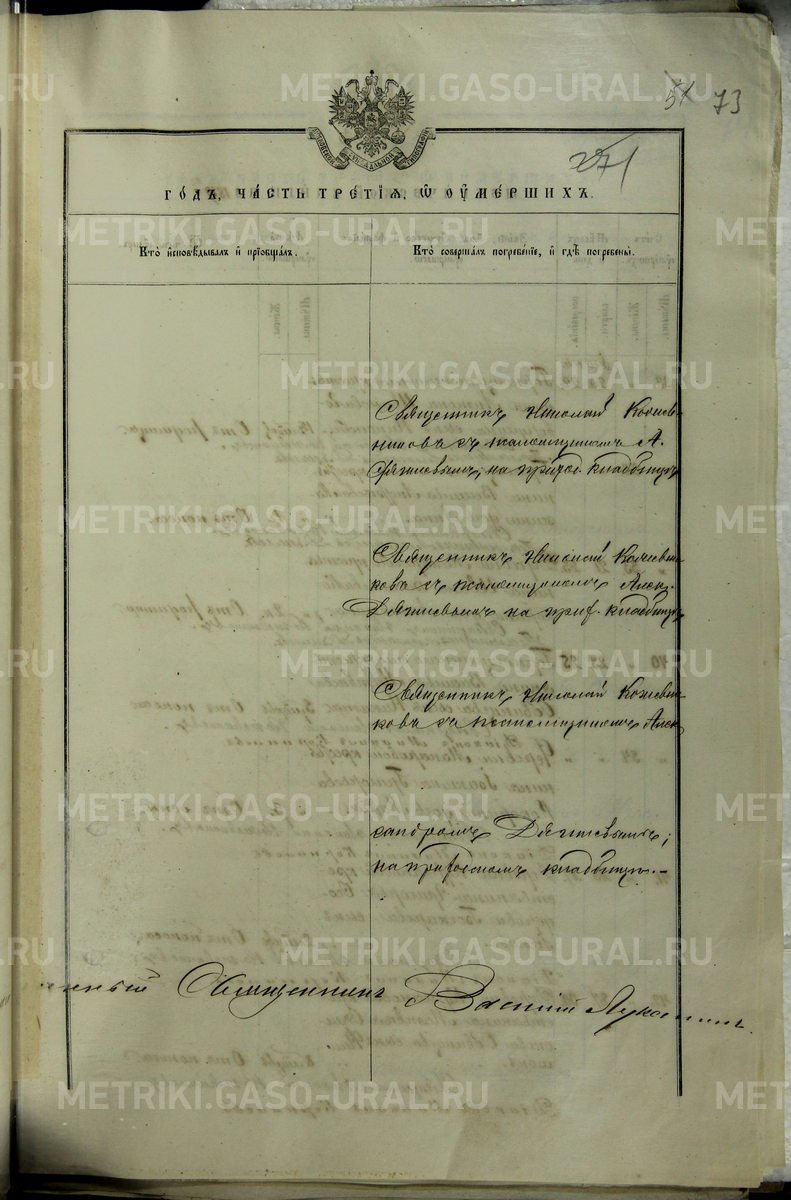 METRIKI.GASO-URAL.RU
51 73
271
годъ, часть третїѧ, ѡ оумершихъ.
Кто исповѣдывалъ и прїобщалъ.
Кто совершалъ погребенїе, и гдѣ погребены.
Священникъ Николай Кожев-
никовъ съ псаломщикомъ А.
Дягилевымъ, на приход. кладбищѣ
Священникъ Николай Кожевни
ковъ съ псаломщикомъ Алек.
Дягилевымъ на прих. кладбищѣ
Священникъ Николай Кожевни
ковъ съ псаломщикомъ Алек
сандромъ Дягилевымъ,
на приходскомъ кладбищѣ.-
Священникъ Василій Луканинъ